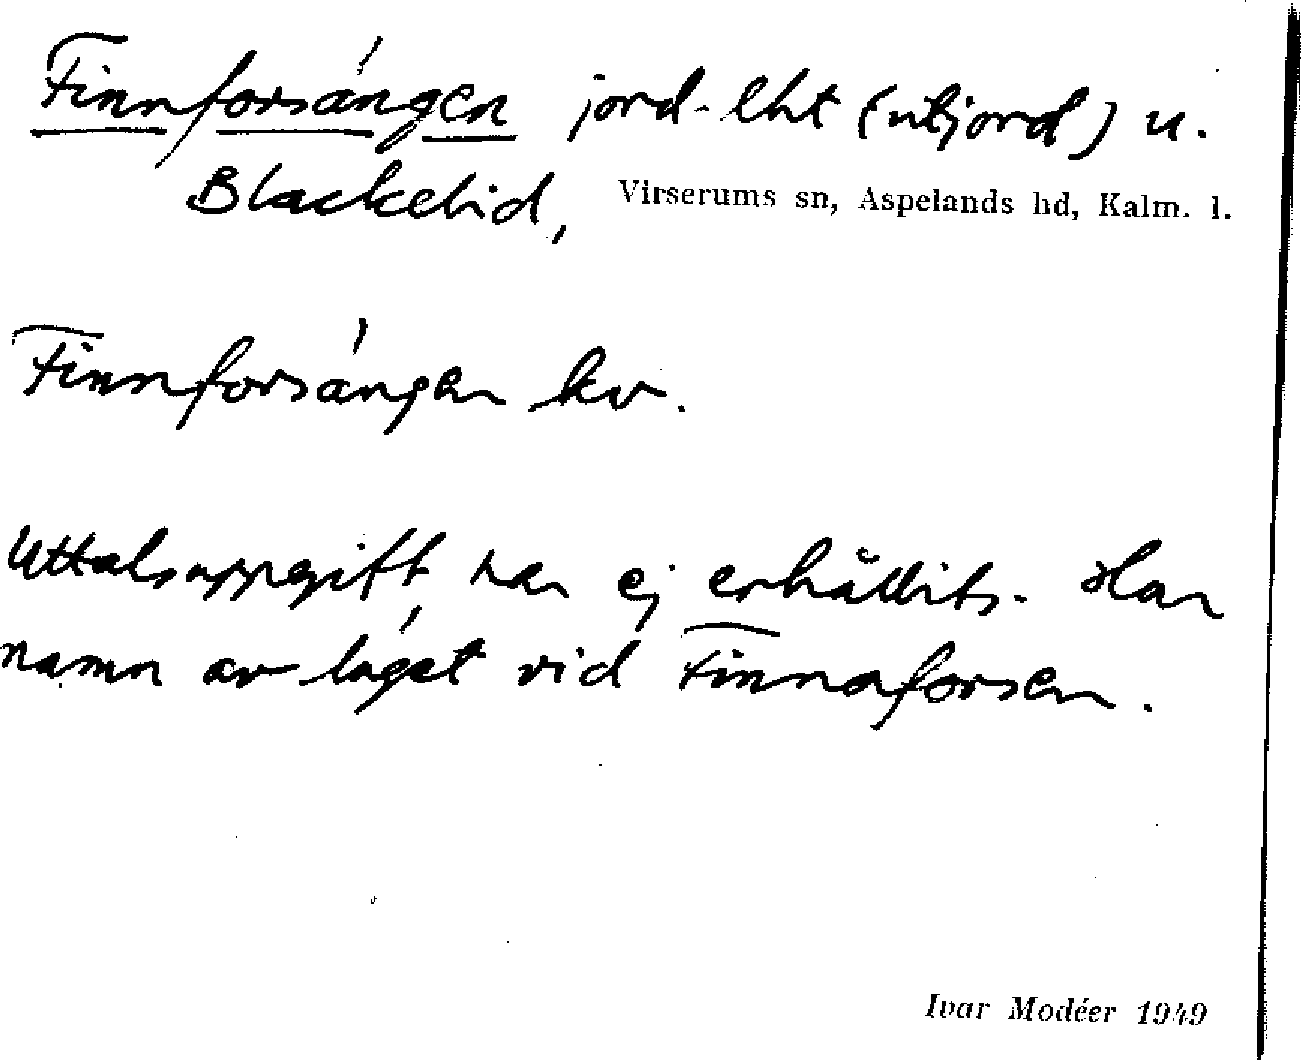 Finnforsängen jord-lht (utjord) u.
Blackelid, Virserums sn, Aspelands hd, Kalm. l.
Finnforsängen kv.
Uttalsuppgift har ej erhållits. Har
namn av läget vid Finnaforsen.
Ivar Modéer 1949